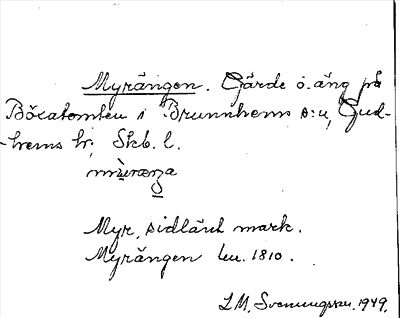 Myrängen. Gärde o. äng på
Böcatomten i Brunnhems s:n, Gud-
-hems hr, Skb. l.
Myr, sidlänt mark.
Myrängen lm. 1810.
L.M. Svenungsson. 1949.